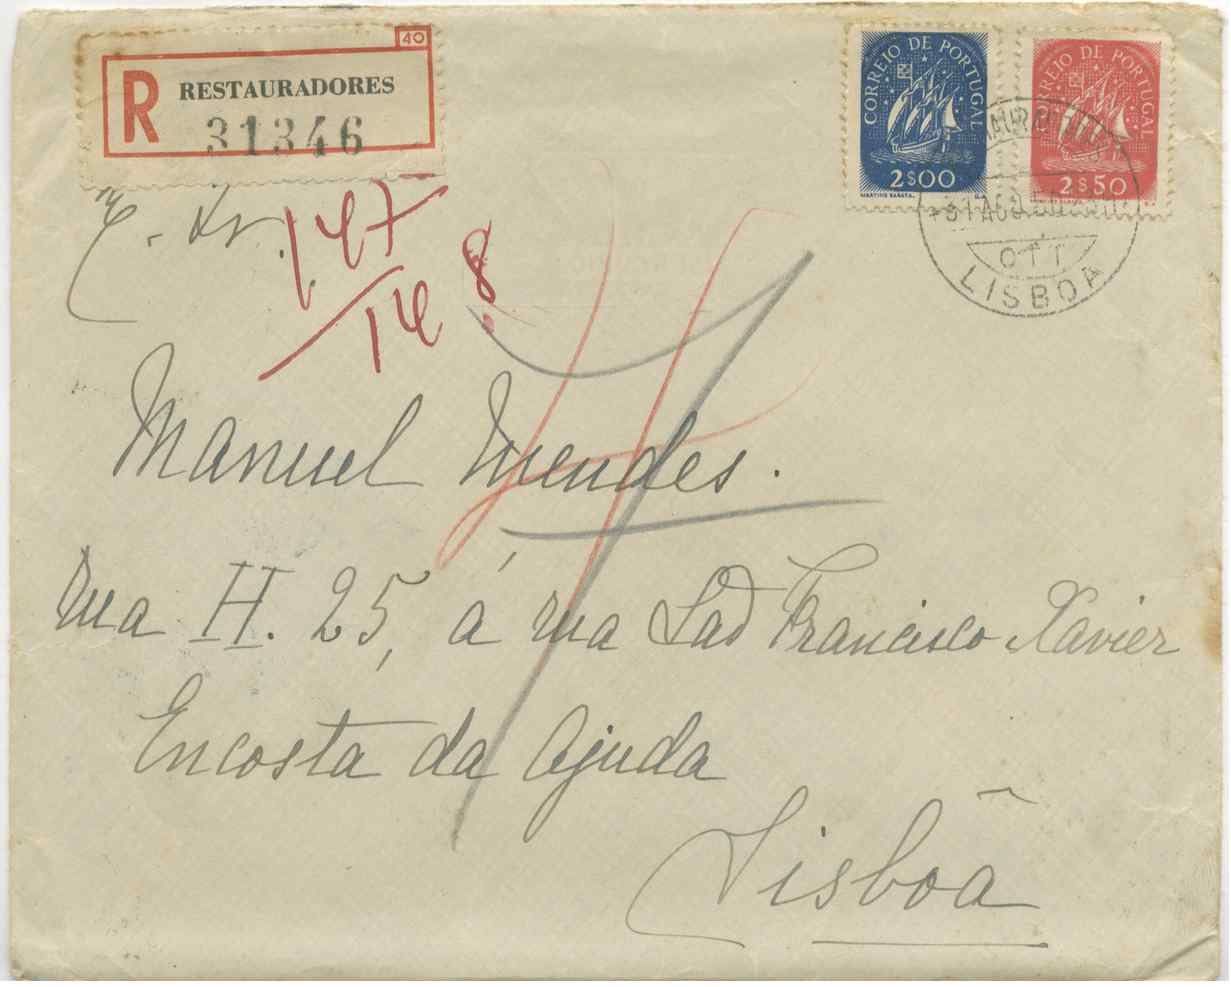 40
R RESTAURADORES
31346
CORREIO DE PORTUGAL
2$00
MARTINS BARATA.
CORREIO DE PORTUGAL
2$50
LISBOA
147
148
Manuel Mendes.
rua H. 25, á rua Saõ Francisco Xavier
Encosta da Ajuda
Lisbôa